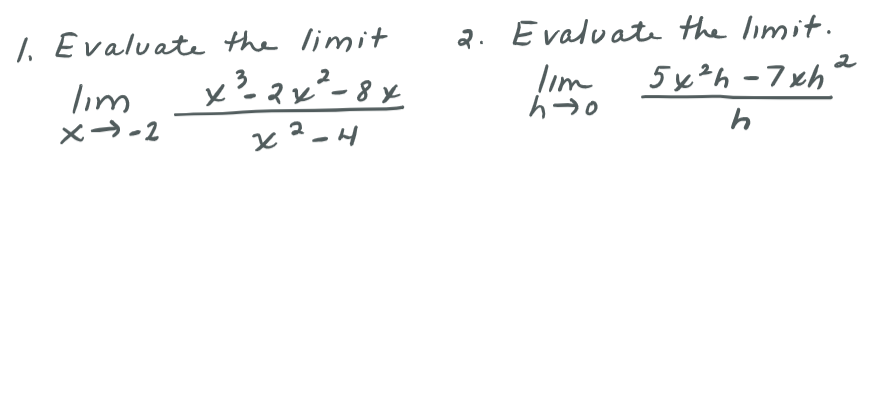 1. Evaluate the limit
lim x→-2 (x³ - 2x² - 8x)/(x² - 4)
2. Evaluate the limit.
lim h→0 (5x²h - 7xh²)/h